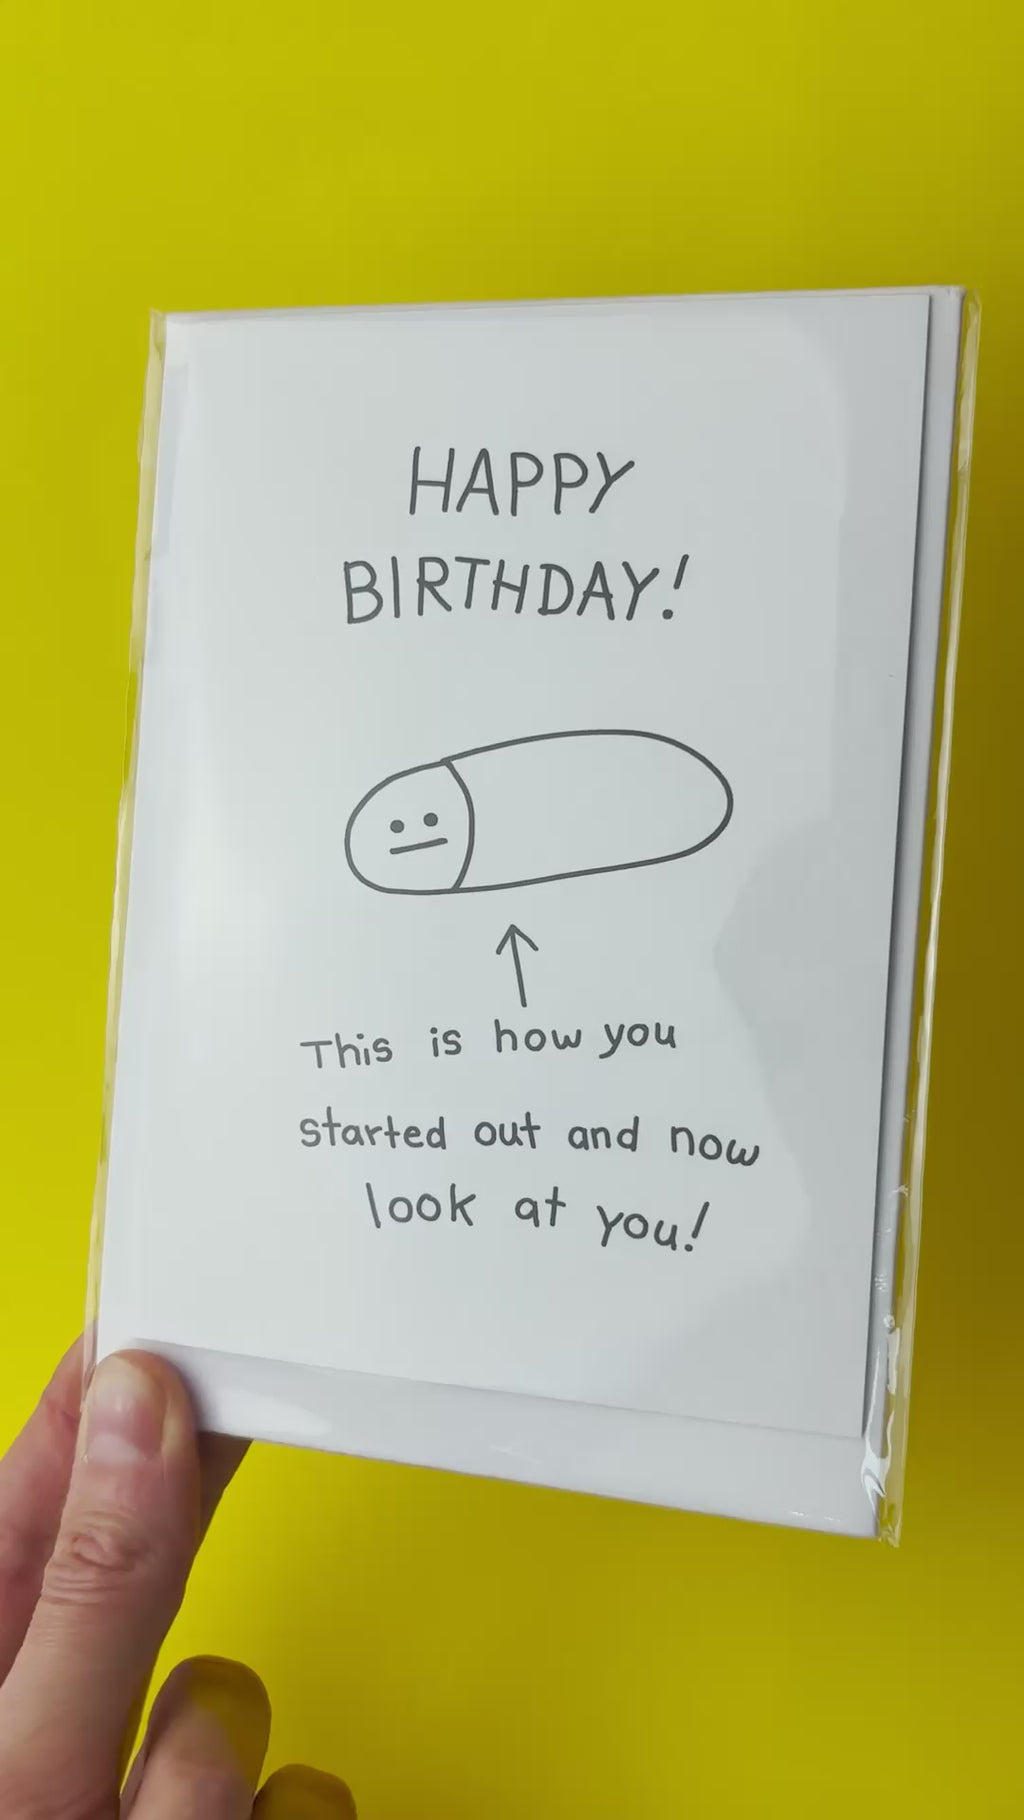 HAPPY
BIRTHDAY!
This is how you
started out and now
look at you!